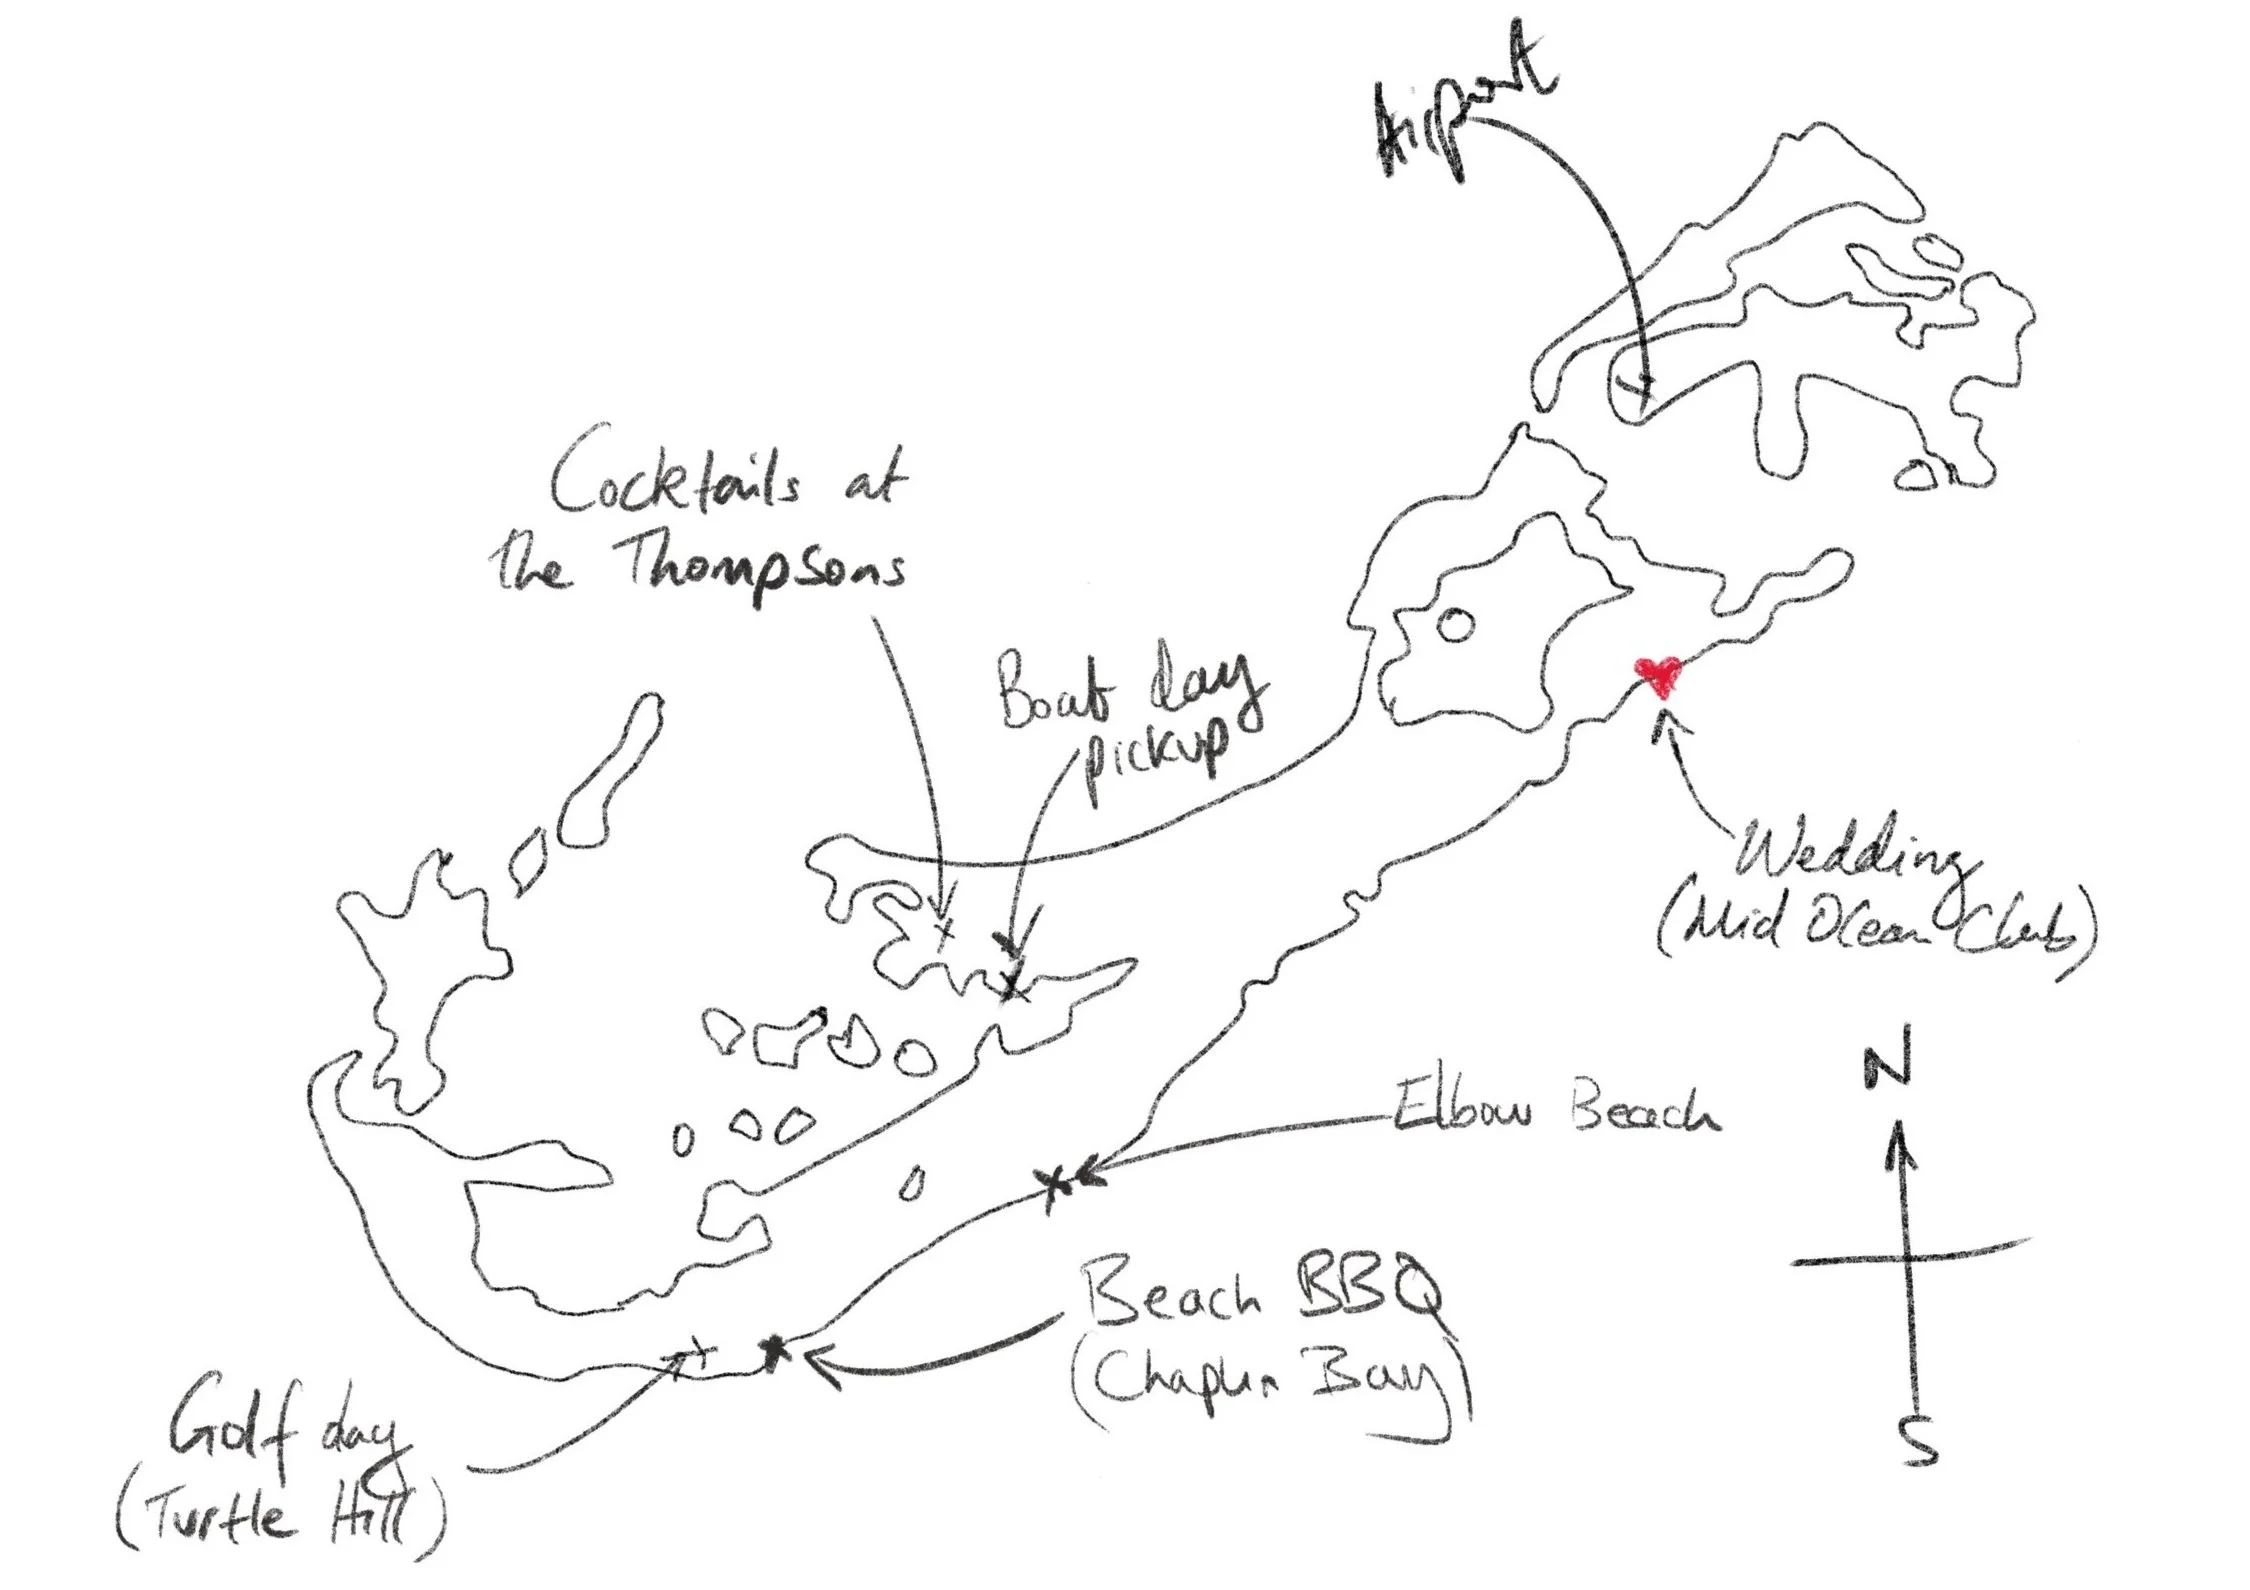 Airport
Cocktails at
the Thompsons
Boat day
pickup
Wedding
(Mid Ocean Club)
N
Elbow Beach
Beach BBQ
(Chaplin Bay)
Golf day
(Turtle Hill)
S